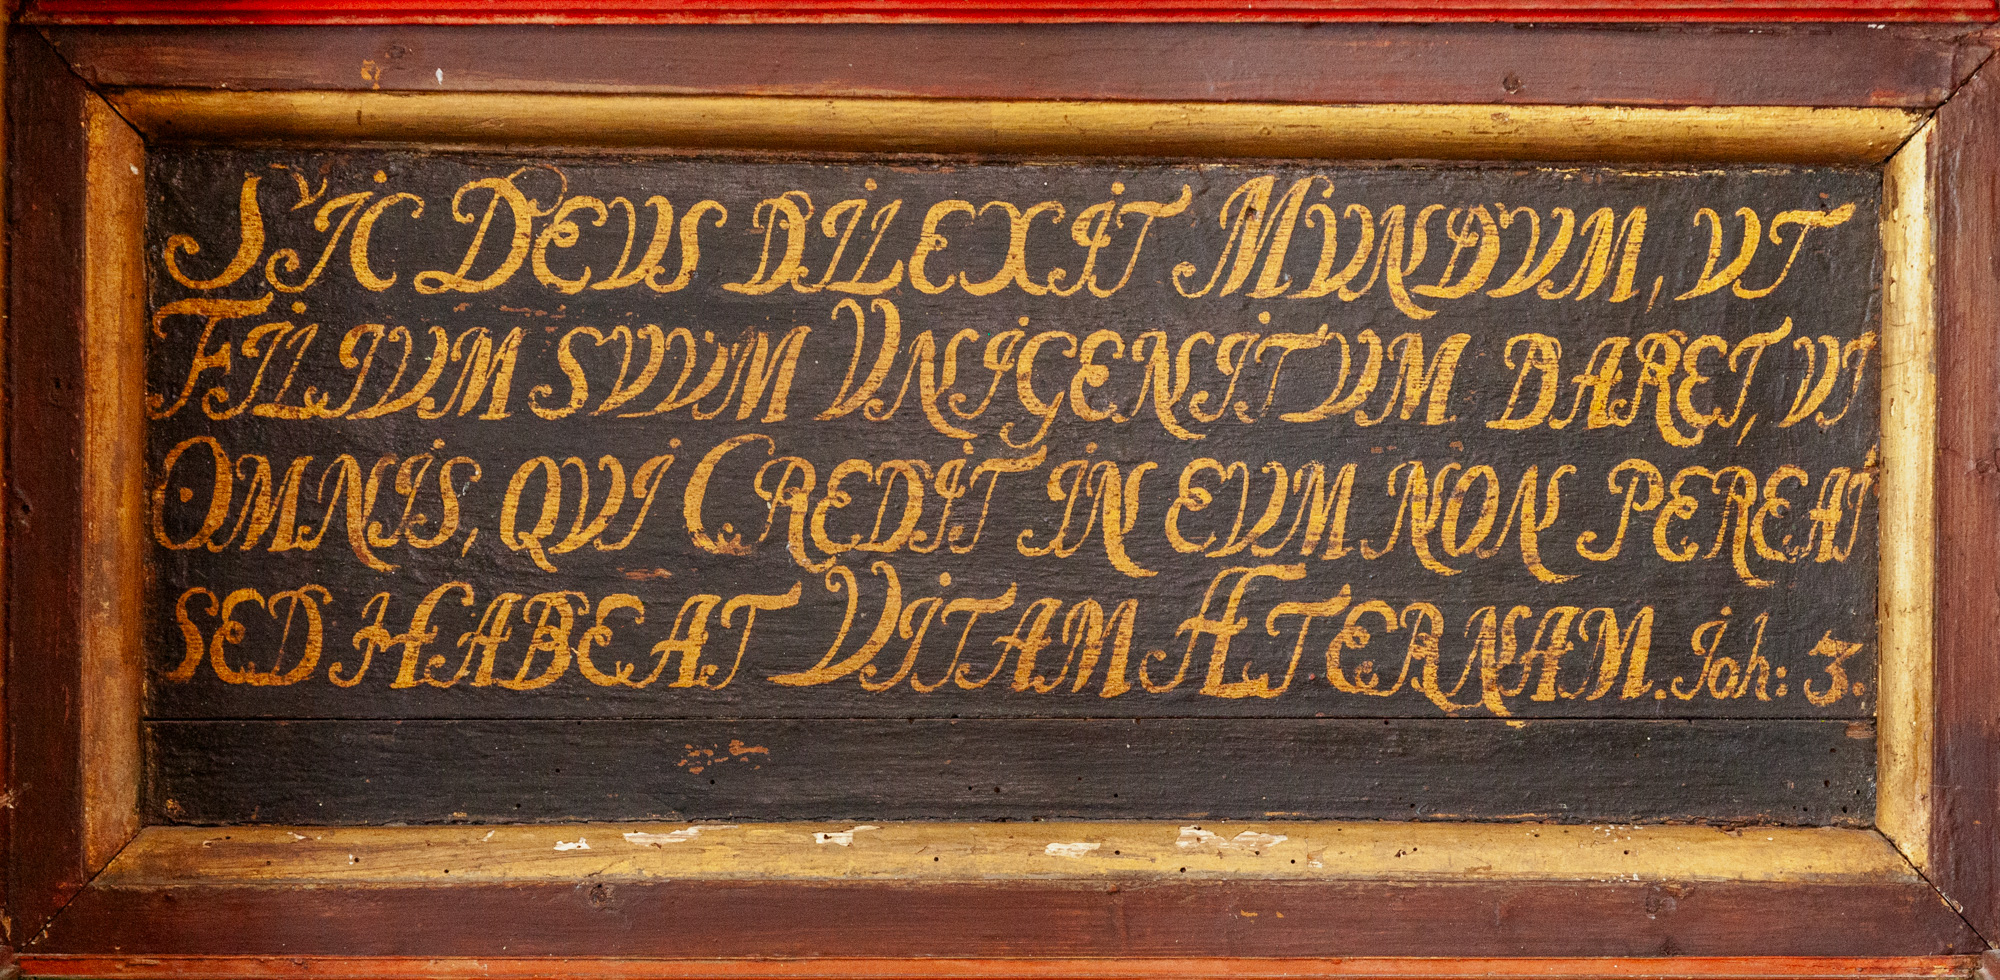 SIC DEUS DILEXIT MVNDVM, VT
FILIVM SVVM VNIGENITVM DARET, VT
OMNIS, QVI CREDIT IN EVM NON PEREAT
SED HABEAT VITAM ÆTERNAM. Joh: 3.